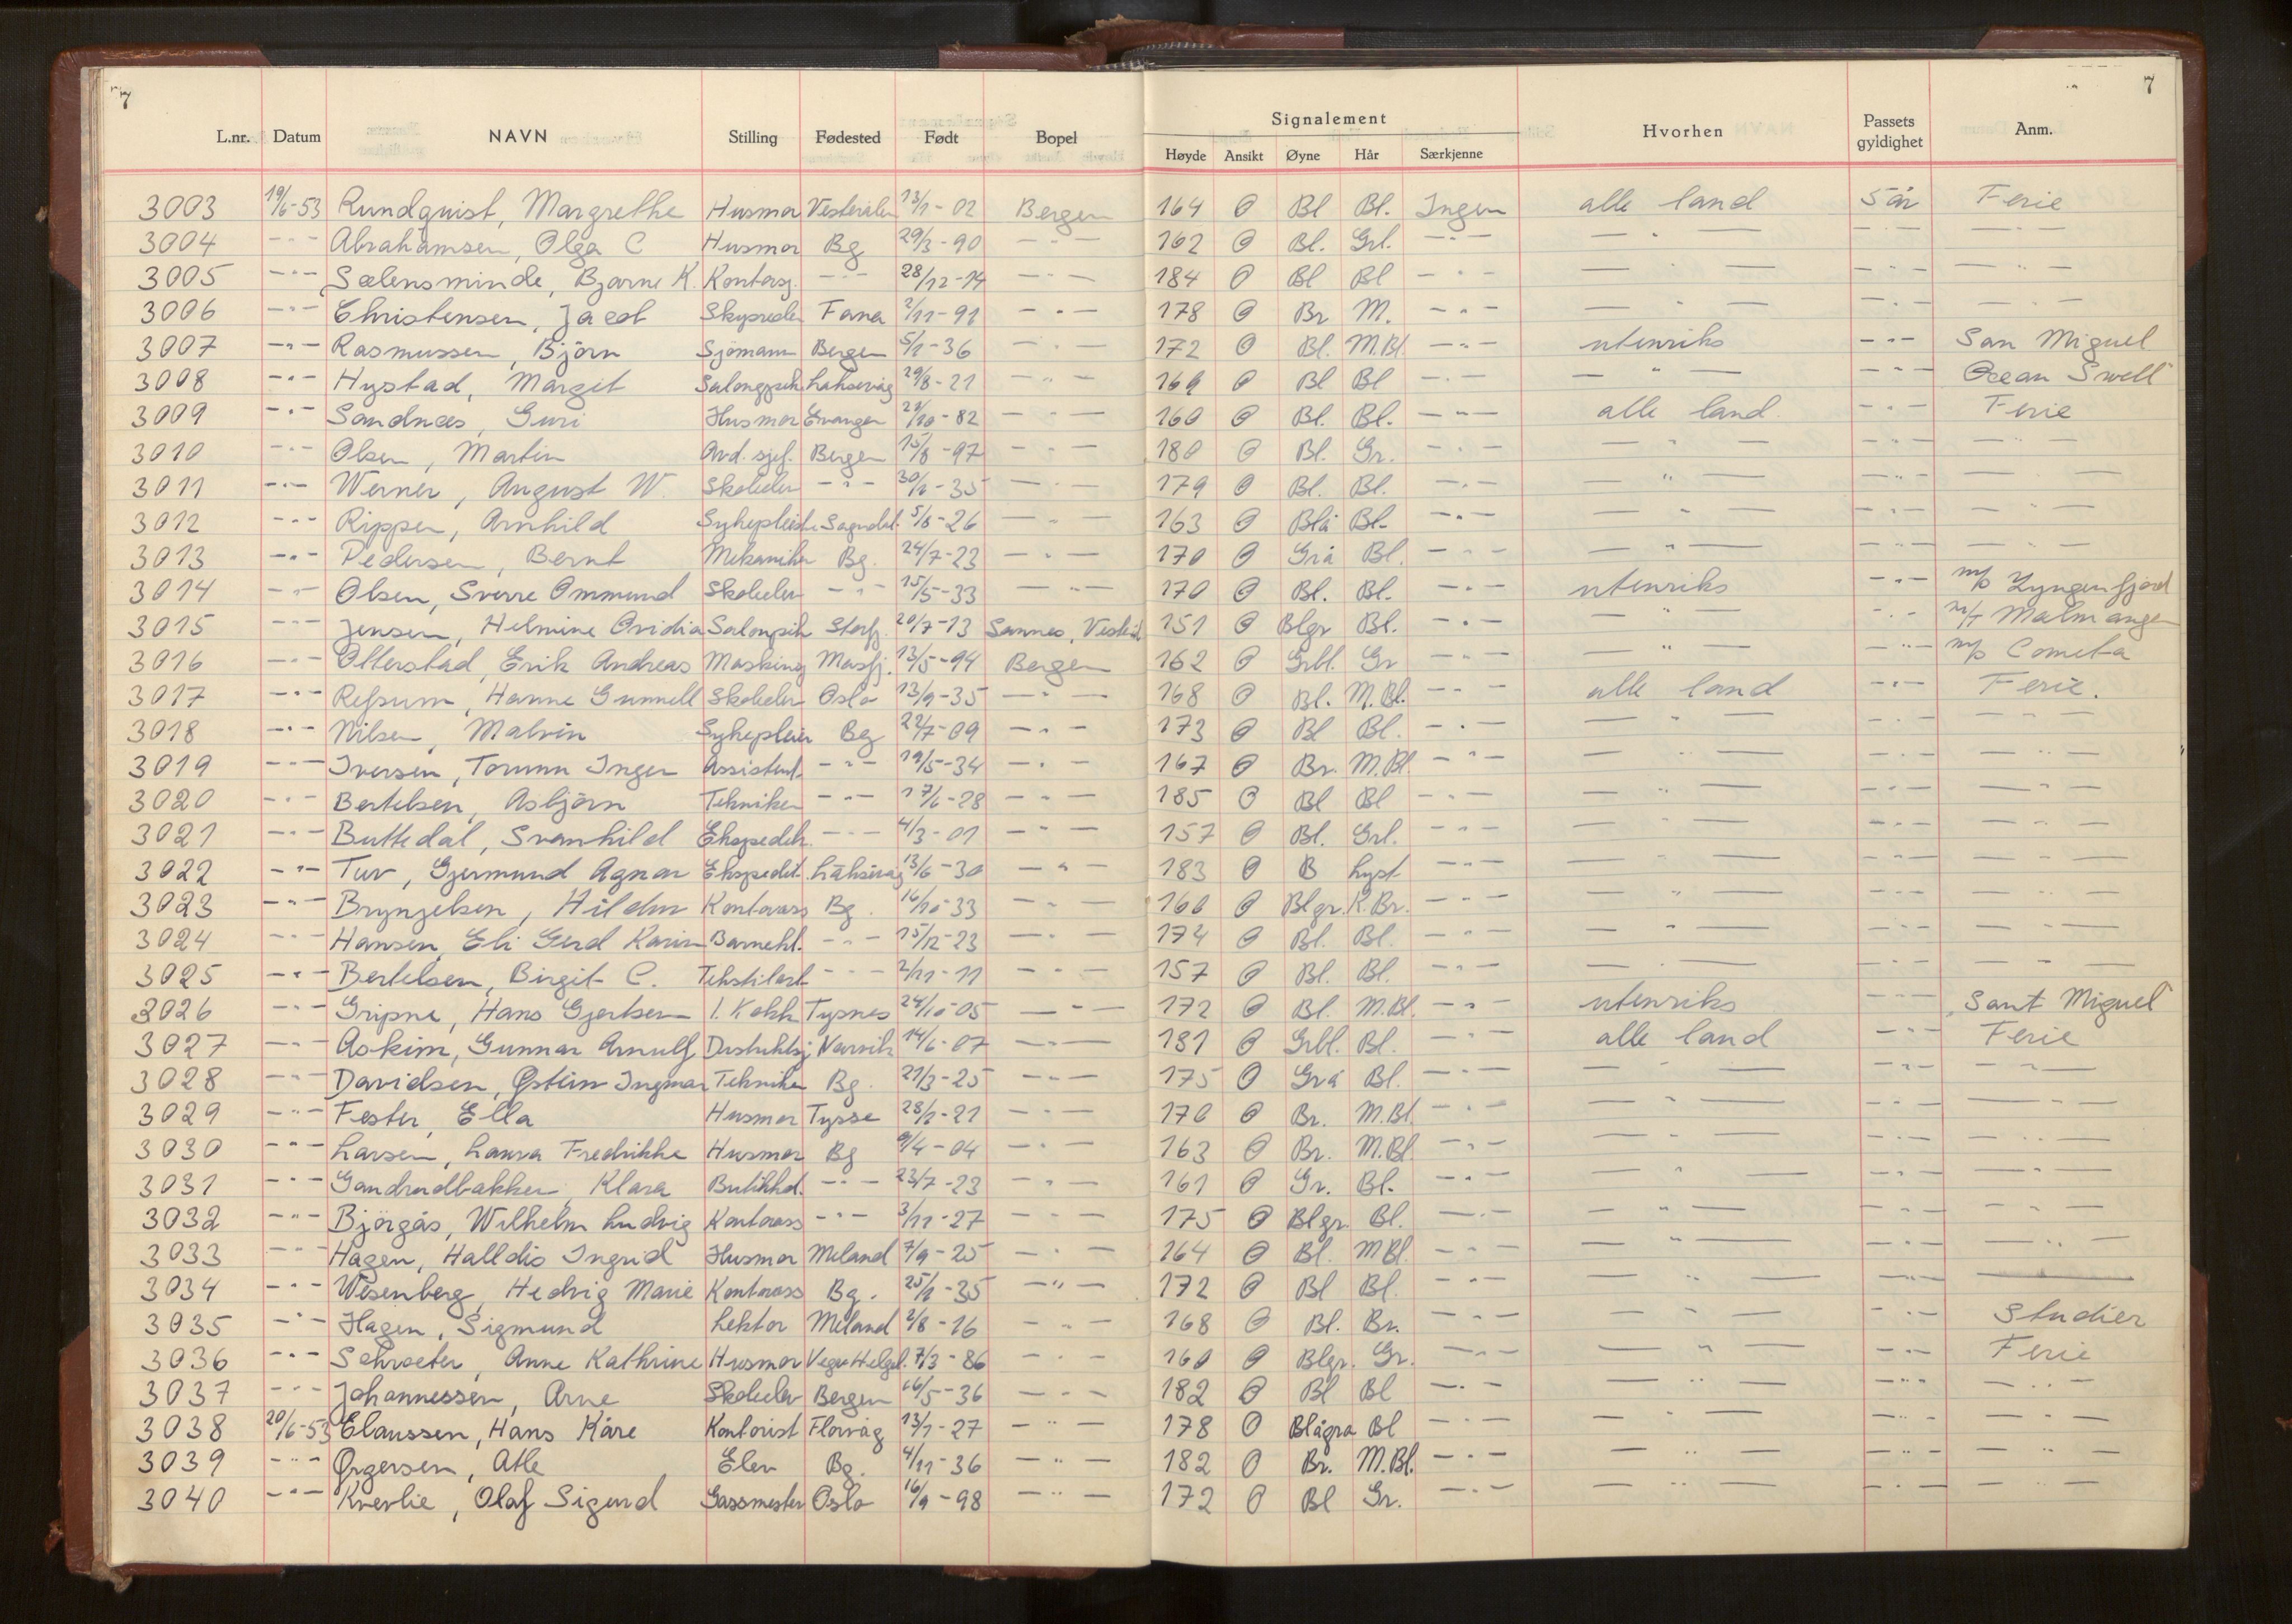 7 7
L.nr. Datum NAVN Stilling Fødested Født Bopel Signalement Høyde Ansikt Øyne Hår Særkjenne Hvorhen Passets gyldighet Anm.
3003 19/6-53 Rundquist, Margrethe Husmor Vesterålen 13/1-02 Bergen 164 O Bl Bl. Ingen alle land 5 år Ferie
3004 -"- Abrahamsen, Olga C Husmor Bg 29/3-90 -"- 162 O Bl. Grl. -"- -"- -"- -"-
3005 -"- Sælensminde, Bjarne K. Kontorsj. -"- 28/12-14 -"- 184 O Bl Bl -"- -"- -"- -"-
3006 -"- Christensen, Jacob Skipsreder Fana 2/11-91 -"- 178 O Br M. -"- -"- -"- -"-
3007 -"- Rasmussen, Björn Sjömann Bergen 5/1-36 -"- 172 O Bl. M.Bl. -"- utenriks -"- San Miguel
3008 -"- Hystad, Margit Laksevåg 29/8-21 -"- 169 O Bl Bl -"- -"- -"- Ocean Swell
3009 -"- Sandnæs, Guri Husmor 160 O Bl. Bl. -"- alle land. -"- Ferie
3010 -"- Olsen, Martin Avd. sjef. Bergen 15/8-97 -"- 180 O Bl. Gr. -"- -"- -"- -"-
3011 -"- Werner, August W. Skoleelev -"- -"- 179 O Bl. Bl. -"- -"- -"- -"-
3012 -"- Rippen, Arnhild Sykepleierske Sogndal 5/8-26 -"- 163 O Blå Bl. -"- -"- -"- -"-
3013 -"- Pedersen, Bernt Mekaniker Bg. 24/7-23 -"- 170 O Grå Bl. -"- -"- -"- -"-
3014 -"- Olsen, Sverre Ommund Skoleelev -"- 15/5-33 -"- 170 O Bl. Bl. -"- utenriks -"- m/s Lyngenfjord
3015 -"- Jensen, Helmine Ovidia Salonpik 20/7-13 151 O Blgr Bl. -"- -"- -"- m/t Malmanger
3016 -"- Otterstad, Erik Andreas Maskinsj Masfj. 13/5-94 Bergen 162 O Grbl. Gr -"- -"- -"- m/s Cometa
3017 -"- Refsum, Hanne Gunnell Skoleelev Oslo 13/9-35 -"- 168 O Bl. M.Bl. -"- alle land -"- Ferie.
3018 -"- Nilsen, Malvin Sykepleier Bg 22/7-09 -"- 173 O Bl Bl. -"- -"- -"- -"-
3019 -"- Iversen, Torunn Inger Assistent -"- 19/5-34 -"- 167 O Br. M.Bl. -"- -"- -"- -"-
3020 -"- Bertelsen, Asbjörn Tekniker -"- 17/6-28 -"- 185 O Bl Bl -"- -"- -"- -"-
3021 -"- Buttedal, Svanhild Ekspeditr. -"- 4/3-01 -"- 157 O Bl. Grl. -"- -"- -"- -"-
3022 -"- Tuv, Gjermund Agnar Ekspedit. Laksevåg 13/6-30 -"- 183 O B Lyst -"- -"- -"- -"-
3023 -"- Brynjelsen, Hildur Kontorass Bg. 16/10-33 -"- 160 O Blgr. K.Br. -"- -"- -"- -"-
3024 -"- Hansen, Eli Gerd Karin Barnehl. -"- 15/12-23 -"- 174 O Bl. Bl. -"- -"- -"- -"-
3025 -"- Bertelsen, Birgit C. Tekstilarb -"- 2/11-11 -"- 157 O Bl. Bl. -"- -"- -"- -"-
3026 -"- Gripne, Hans Gjertsen 1. Kokk Tysnes 24/10-05 -"- 172 O Bl. M.Bl. -"- utenriks -"- Sant Miguel
3027 -"- Askim, Gunnar Arnulf Distriktsj Narvik 14/6-07 -"- 181 O Grbl. Bl. -"- alle land -"- Ferie
3028 -"- Davidsen, Østein Ingmar Tekniker Bg. 21/3-25 -"- 175 O Grå Bl. -"- -"- -"- -"-
3029 -"- Fester, Ella Husmor Tysse 28/1-21 -"- 170 O Br. M.Bl. -"- -"- -"- -"-
3030 -"- Larsen, Laura Fredrikke Husmor Bg 9/4-04 -"- 163 O Br. M.Bl -"- -"- -"- -"-
3031 -"- Gandrudbakken, Klara Butikkd. -"- 23/7-23 -"- 161 O Gr. Bl. -"- -"- -"- -"-
3032 -"- Björgås, Wilhelm Ludvig Kontorass -"- 3/11-27 -"- 175 O Blgr. Bl. -"- -"- -"- -"-
3033 -"- Hagen, Halldis Ingrid Husmor Meland 7/9-25 -"- 164 O Bl. MBl. -"- -"- -"- -"-
3034 -"- Wesenberg, Hedvig Marie Kontorass Bg. 25/1-35 -"- 172 O Bl Bl. -"- -"- -"- —
3035 -"- Hagen, Sigmund Lektor Meland 2/8-16 -"- 168 O Bl. Br. -"- -"- -"- Studier
3036 -"- Schroeter, Anne Kathrine Husmor Vega Helgel. 7/3-86 -"- 160 O Blgr. Gr. -"- -"- -"- Ferie
3037 -"- Johannessen, Arne Skoleelev Bergen 16/5-36 -"- 182 O Bl Bl -"- -"- -"- -"-
3038 20/6-53 Claussen, Hans Kåre Kontorist Florvåg 13/1-27 -"- 178 O Blågrå Bl -"- -"- -"- -"-
3039 -"- Ørgersen, Atle Elev Bg. 4/11-36 -"- 182 O Br. M.Bl. -"- -"- -"- -"-
3040 -"- Kverlie, Olaf Sigurd Gassmester Oslo 16/9-98 -"- 172 O Bl Gr. -"- -"- -"- -"-